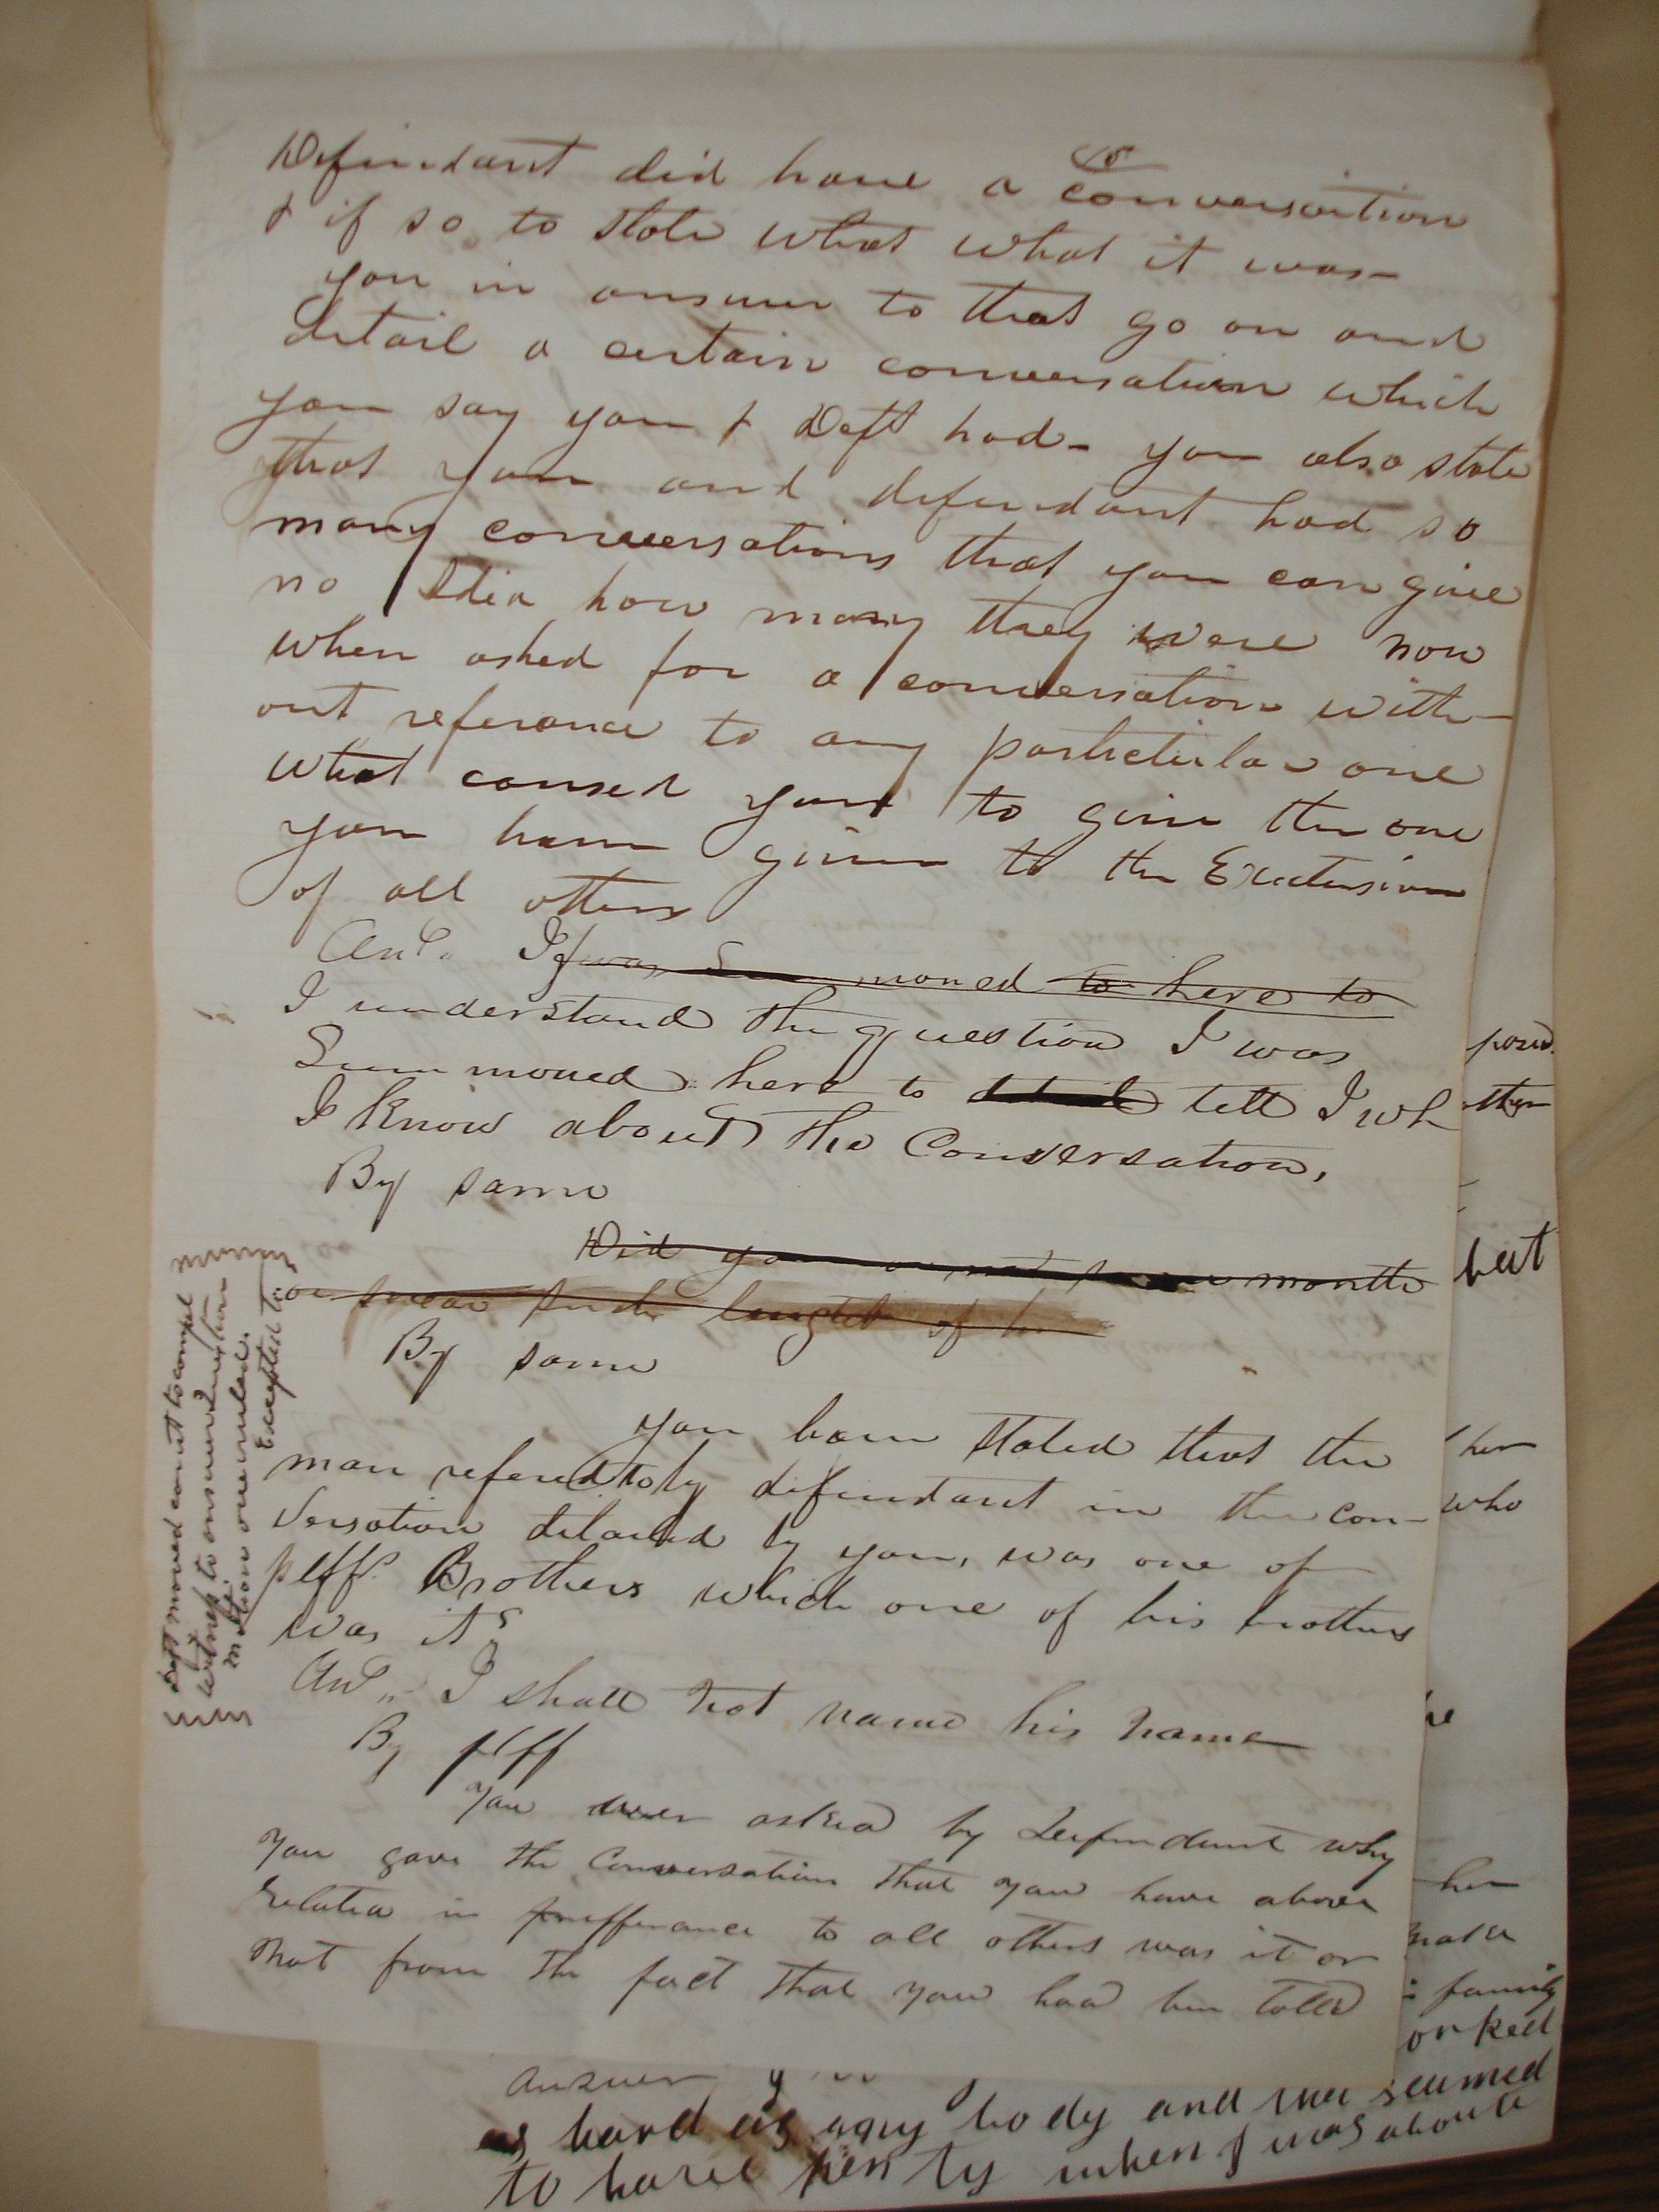 6
Defendant did have a conversation
& if so to state what what it was–
you in answer to that go on and
detail a certain conversation which
you say you & Deft had– you also state
that you and defendant had so
many conversations that you can give
no Idea how many they were now
when asked for a conversation with–
out reference to any particular one
what caused you to give the one
you have given to the Exclusion
of all others
Ans. If was Summoned to here to
I understand the question I was
Summoned here to tell I wh
I Know about the Conversation,
By same
Did you or not month
or swear such length of
By same
you have stated that the
man refered to by defendant in the con–
versation detailed by you, was one of
plffs Brothers which one of his brothers
was it?
Ans. I shall not name his name
By plff
You were asked by Defendant why
you gave the Conversation that you have above
related in prefferance to all others was it or
not from the fact that you had him told
Deft moved court to compel
witness to answer question
Motion overruled.
Excepted to
posed
other
but
her
who
he
her
make
family
worked
answer
as hard as any body and we seemed
to have plenty when I was about